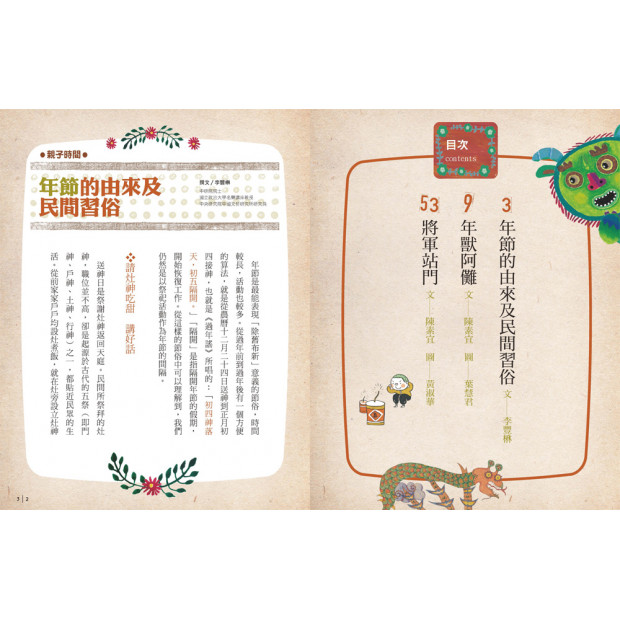 目次
contents
3 年節的由來及民間習俗 文──李豐楙
9 年獸阿儺 文──陳素宜 圖──葉慧君
53 將軍站門 文──陳素宜 圖──黃淑華
親子時間
年節的由來及
民間習俗
撰文／李豐楙
中研院院士
年節是最能表現「除舊布新」意義的節俗，時間
較長，活動也較多。從過年前到過年後有一個方便
的算法，就是從農曆十二月二十四日送神到正月初
四接神，也就是《過年謠》所唱的：「初四神落
天、初五隔開」。「隔開」是指隔開年節的假期，
開始恢復工作。從這樣的節俗中可以理解到，我們
仍然是以祭祀活動作為年節的間隔。
請灶神吃甜 講好話
送神日是祭謝灶神返回天庭。民間所祭拜的灶
神，職位並不高，卻是起源於古代的五祭（即門
神、戶神、土神、行神）之一，都貼近民眾的生
活。從前家家戶戶均設灶煮飯，就在灶旁設立灶神
3 | 2